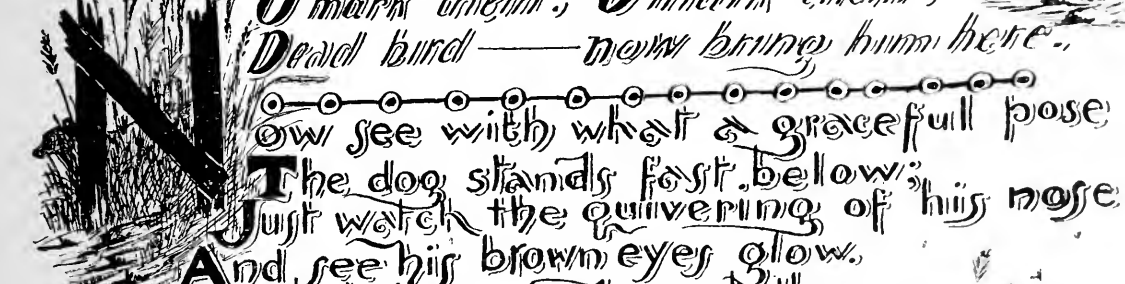 mark them.,
Dead bird — now bring him here.,
Now see with what a gracefull pose
The dog stands fast. below;
Just watch the quivering of his nose
And see his brown eyes glow.